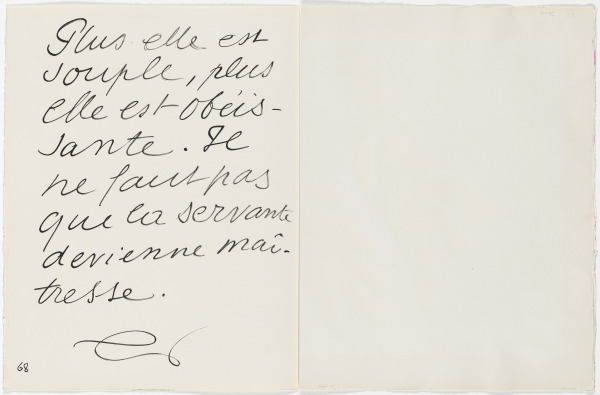 Plus elle est
souple, plus
elle est obéis-
sante. Il
ne faut pas
que la servante
devienne maî-
tresse.
68